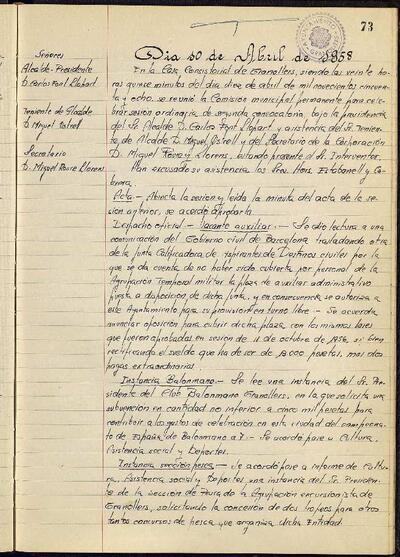 73
Dia 10 de Abril de 1958
Señores
Alcalde-Presidente
D. Carlos Font Llopart
Teniente de Alcalde
D. Miquel
Secretario
D. Miguel Llorens
En la Casa Consistorial de Granollers, siendo las veinte ho-
ras quince minutos del dia diez de abril de mil novecientos cincuen-
ta y ocho, se reunió la Comision municipal permanente para cele-
brar sesion ordinaria de segunda convocatoria, bajo la presidencia
del Sr. Alcalde D. Carlos Font Llopart y asistencia del Sr. Tenien-
te de Alcalde D. Miguel y del Secretario de la Corporación
D. Miguel y Llorens, estando presente el Sr. Interventor.
Han excusado su asistencia los Sres. Estabanell y Ca-
brera.
Acta.- Abierta la sesion y leida la minuta del acta de la se-
sion anterior, se acordó aprobarla.
Despacho oficial.- Vacante auxiliar.- Se dio lectura a una
comunicación del Gobierno civil de Barcelona trasladando otra
de la Junta Calificadora de Aspirantes de Destinos civiles por la
que se da cuenta de no haber sido cubierta por personal de la
Agrupación Temporal militar la plaza de auxiliar administrativo
puesta a disposicion de dicha Junta, y en consecuencia se autoriza a
este Ayuntamiento para su provision en turno libre.- Se acuerda
anunciar oposición para cubrir dicha plaza con las mismas bases
que fueron aprobadas en sesion de 11 de octubre de 1956, si bien
rectificando el sueldo que ha de ser de pesetas, mas dos
pagas extraordinarias.
Instancia Balonmano.- Se lee una instancia del Sr. Pre-
sidente del Club Balonmano Granollers, en la que solicita una
subvencion en cantidad no inferior a cinco mil pesetas para
contribuir a los gastos de celebración en esta ciudad del campeona-
to de España de Balonmano a 7.- Se acordó pase a Cultura,
Asistencia social y Deportes.
Instancia sección pesca.- Se acordó pase a informe de Cultu-
ra, Asistencia social y Deportes, una instancia del Sr. Presiden-
te de la Seccion de Pesca de la Agrupación excursionista de
Granollers, solicitando la concesion de dos trofeos para otros
tantos concursos de pesca que organiza dicha Entidad.